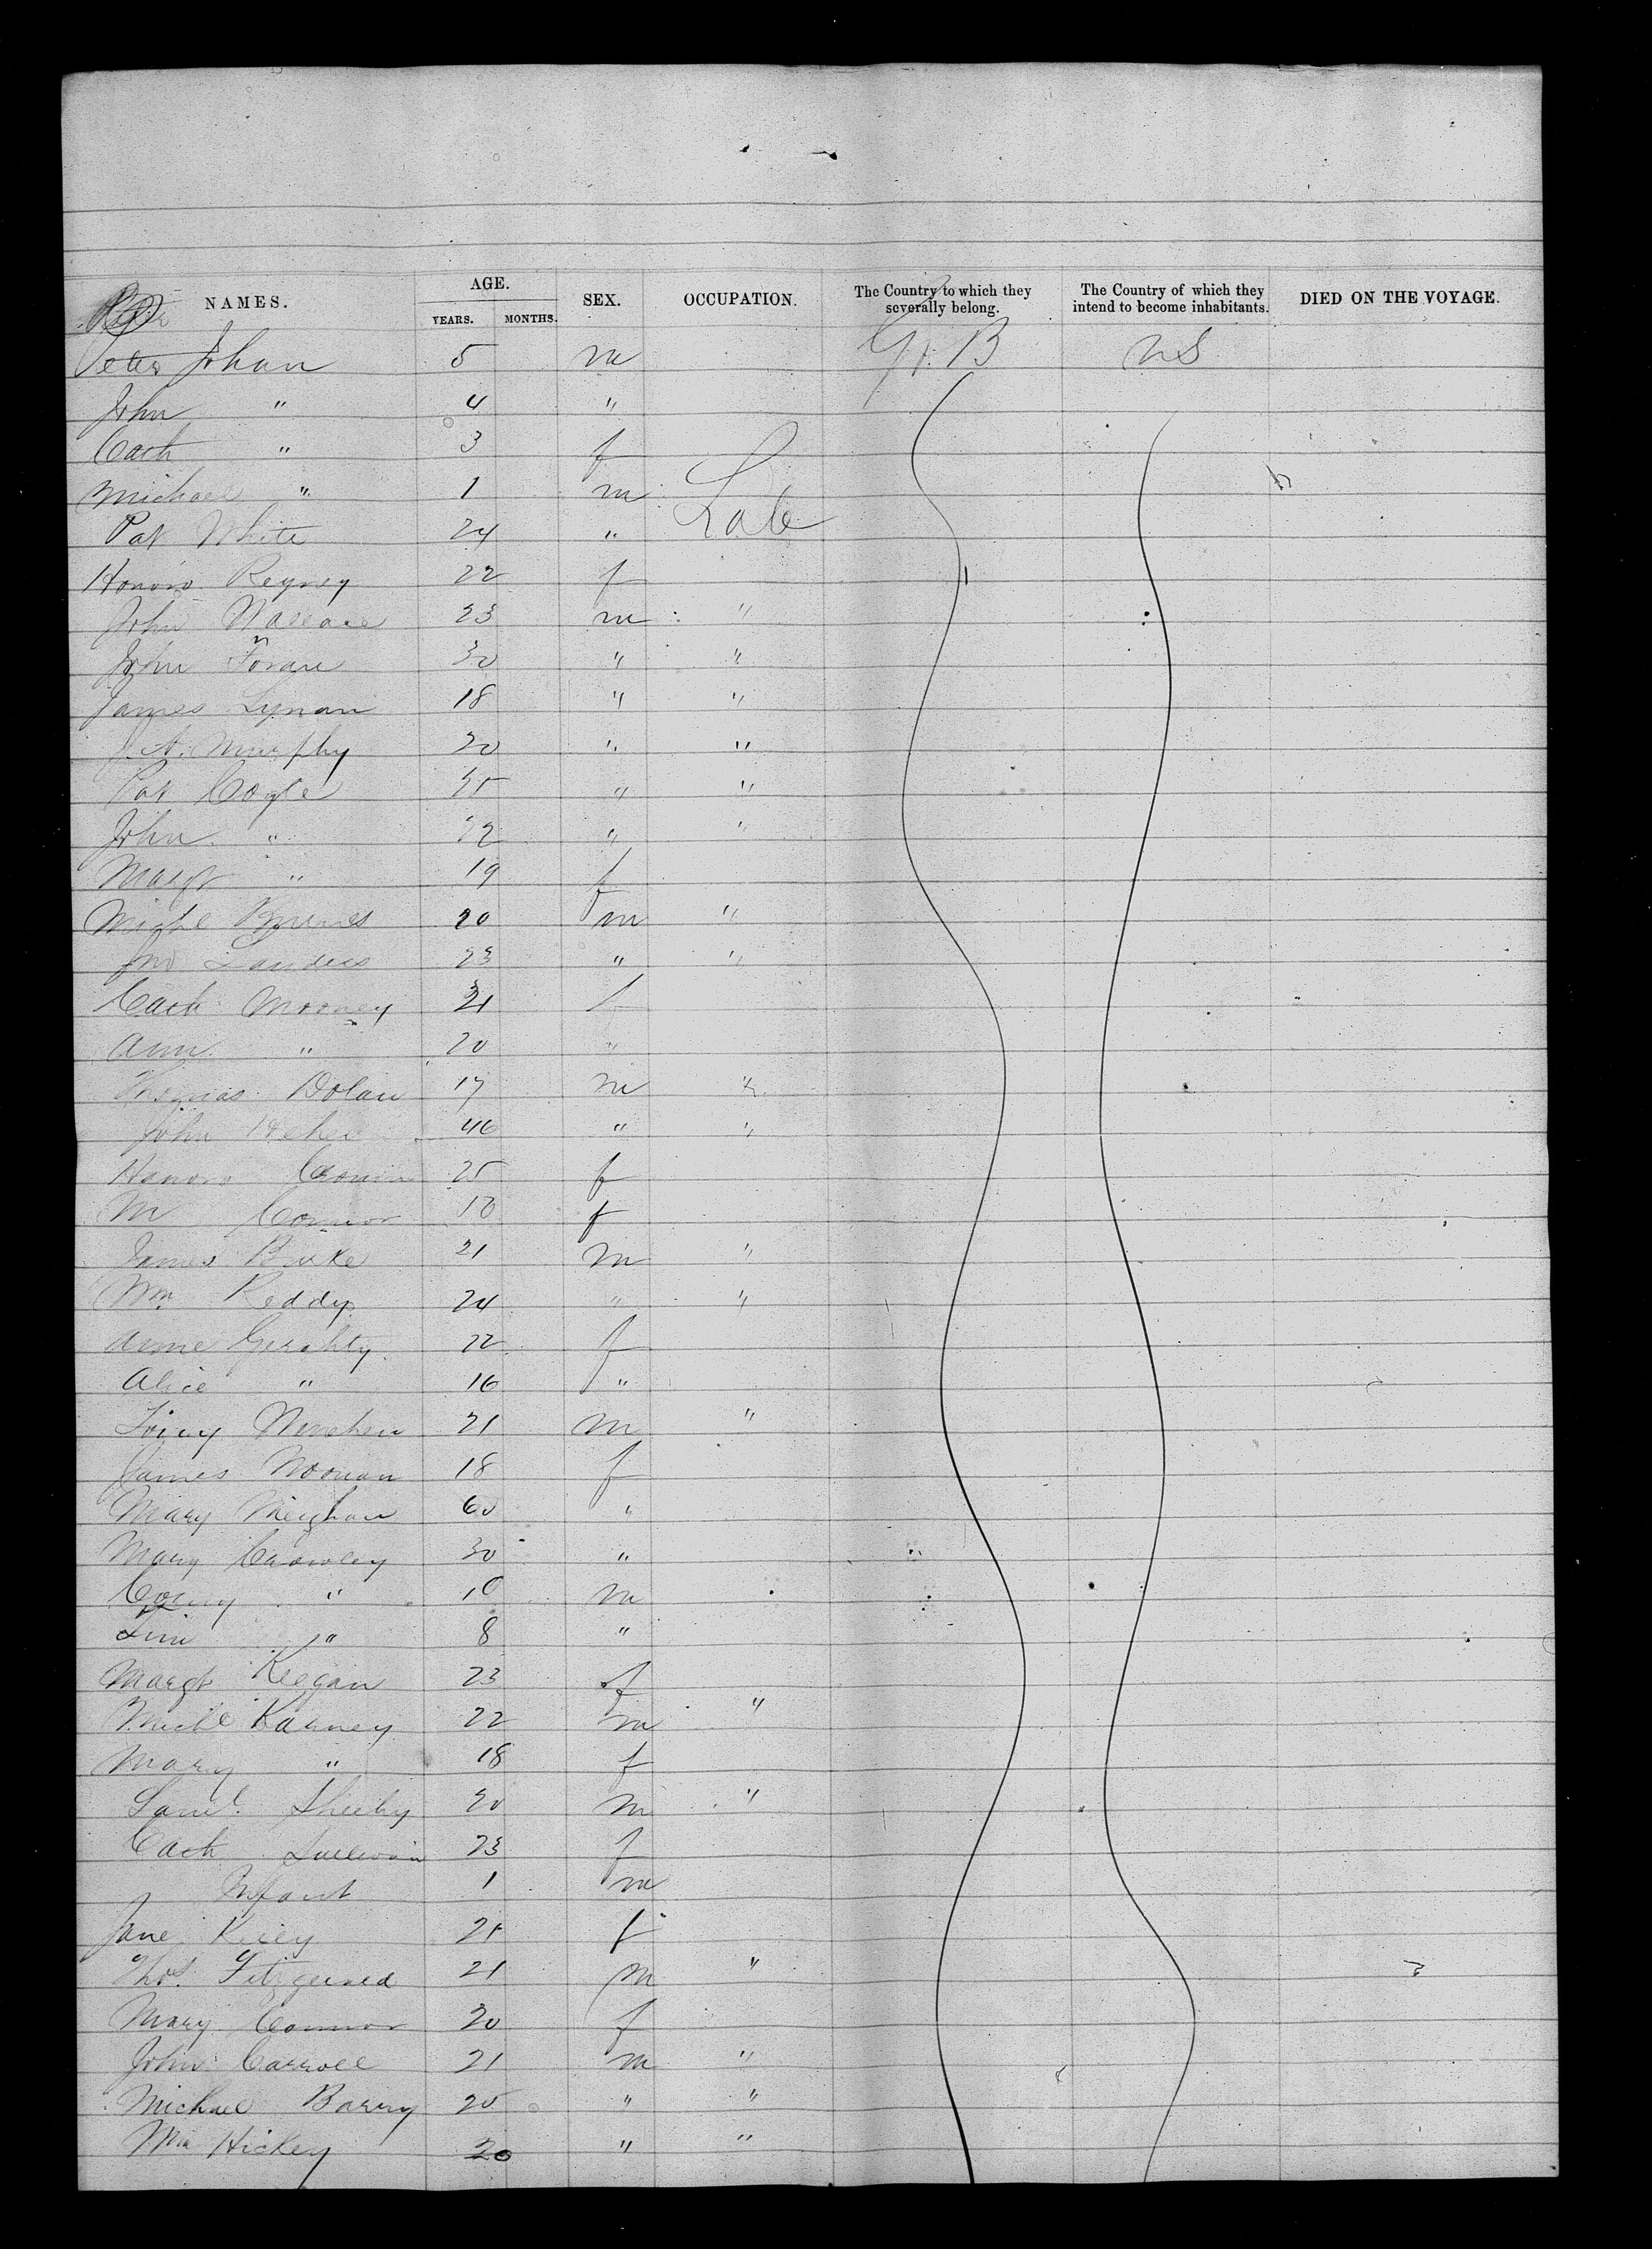 NAMES. AGE. SEX. OCCUPATION. The Country to which they severally belong. The Country of which they intend to become inhabitants. DIED ON THE VOYAGE.
YEARS. MONTHS.
Peter Johan 5 m Gt. B US
John " 4 "
Cath " 3 f
Michael " 1 m
Pat White 24 " Lab
Honora 22 f
John Wallace 23 m "
John Foran 30 " "
James Lynan 18 " "
J. A. Murphy 20 " "
Pat Coyle " "
John " 22 " "
Margt " 19 f
Michl 20 m "
Jno Landers 23 " "
Cath Mooney 21 f
Ann " 20 "
Thomas Dolan 17 m "
John 46 " "
Honora Cronin 25 f
M Connor f
James Burke 21 m "
Wm Reddy 24 " "
Anne Gerahty 22 f
Alice " 16 "
21 m "
James Noonan 18 f
Mary Meighan 60 "
Mary Crowley 30 "
Corny " 10 m
" 8 "
Margt Keegan 23 f
Michl Karney 22 m "
Mary " 18 f
Saml. Sheehy 20 m "
Cath Sullivan 23 f
Infant 1 m
Jane Kiley 21 f
Thos. Fitzgerald 21 m "
Mary Connor 20 f
John Carroll 21 m "
Michael Barry 20 " "
Wm Hickey 20 " "